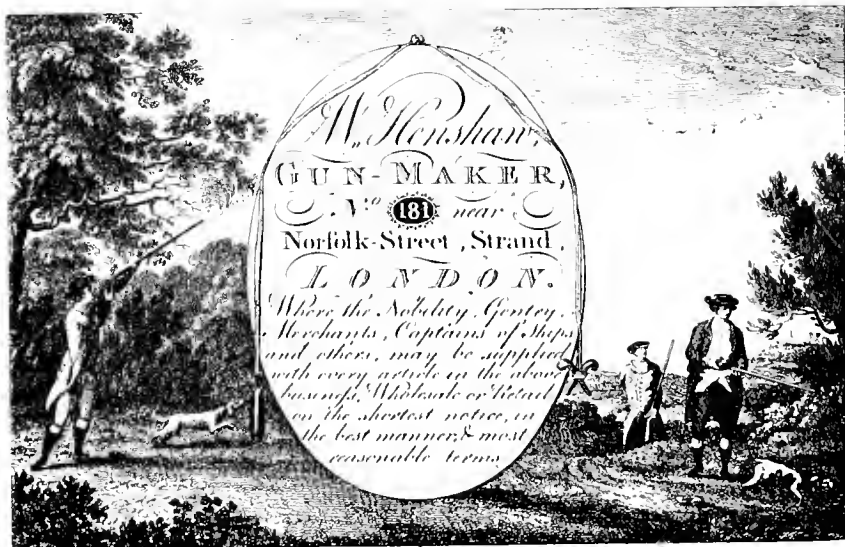 Wm. Henshaw,
GUN-MAKER,
No. 181 near
Norfolk-Street, Strand,
LONDON.
Where the Nobility, Gentry,
Merchants, Captains of Ships
and others, may be supplied
with every article in the above
business, Wholesale or Retail
on the shortest notice, in
the best manner, & most
reasonable terms